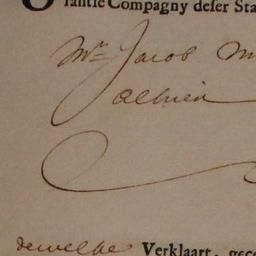 rantie Compagny deser Sta
Mr. Jacob M
alhier
dewelke Verklaart, gec